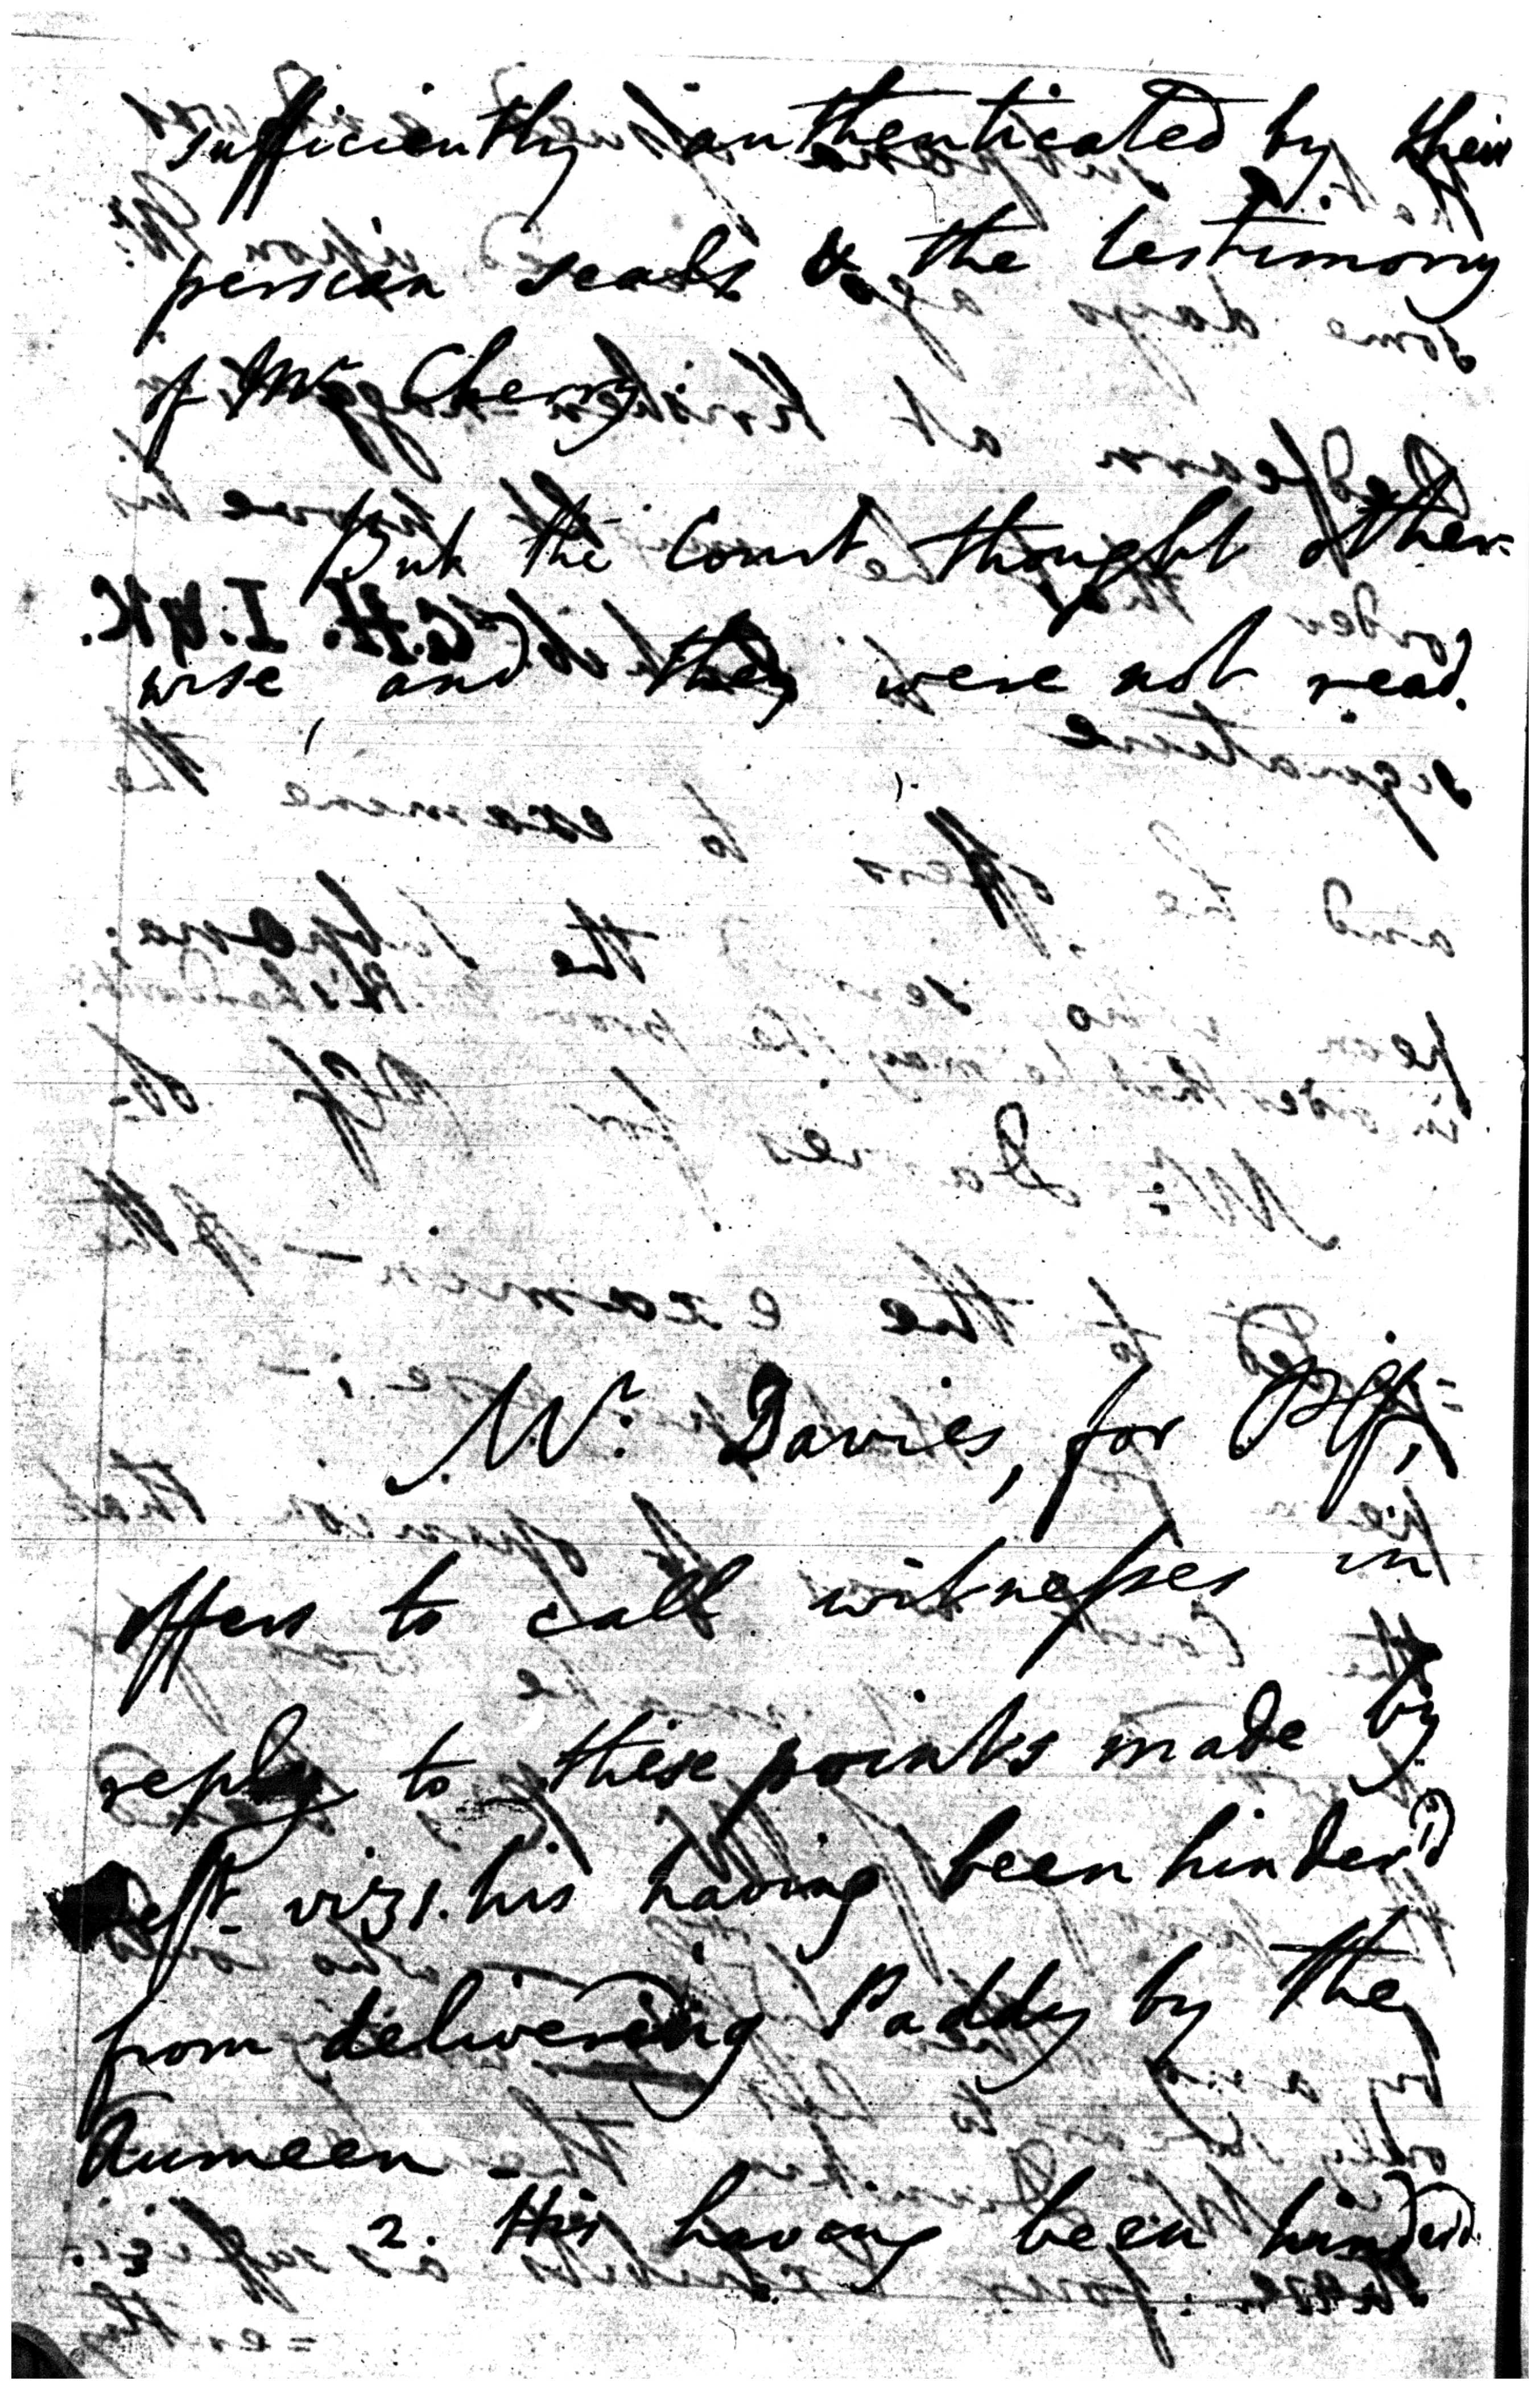 sufficiently authenticated by their
persian seals & the testimony
of Mr Cherry
But the Court thought other-
wise, and they were not read.
Mr. Davies, for Plff,
offers to call witnesses in
reply to these points made by
Deft. vizt. his having been hinder'd
from delivering Paddy by the
Aumeen -
2. His having been hinder'd